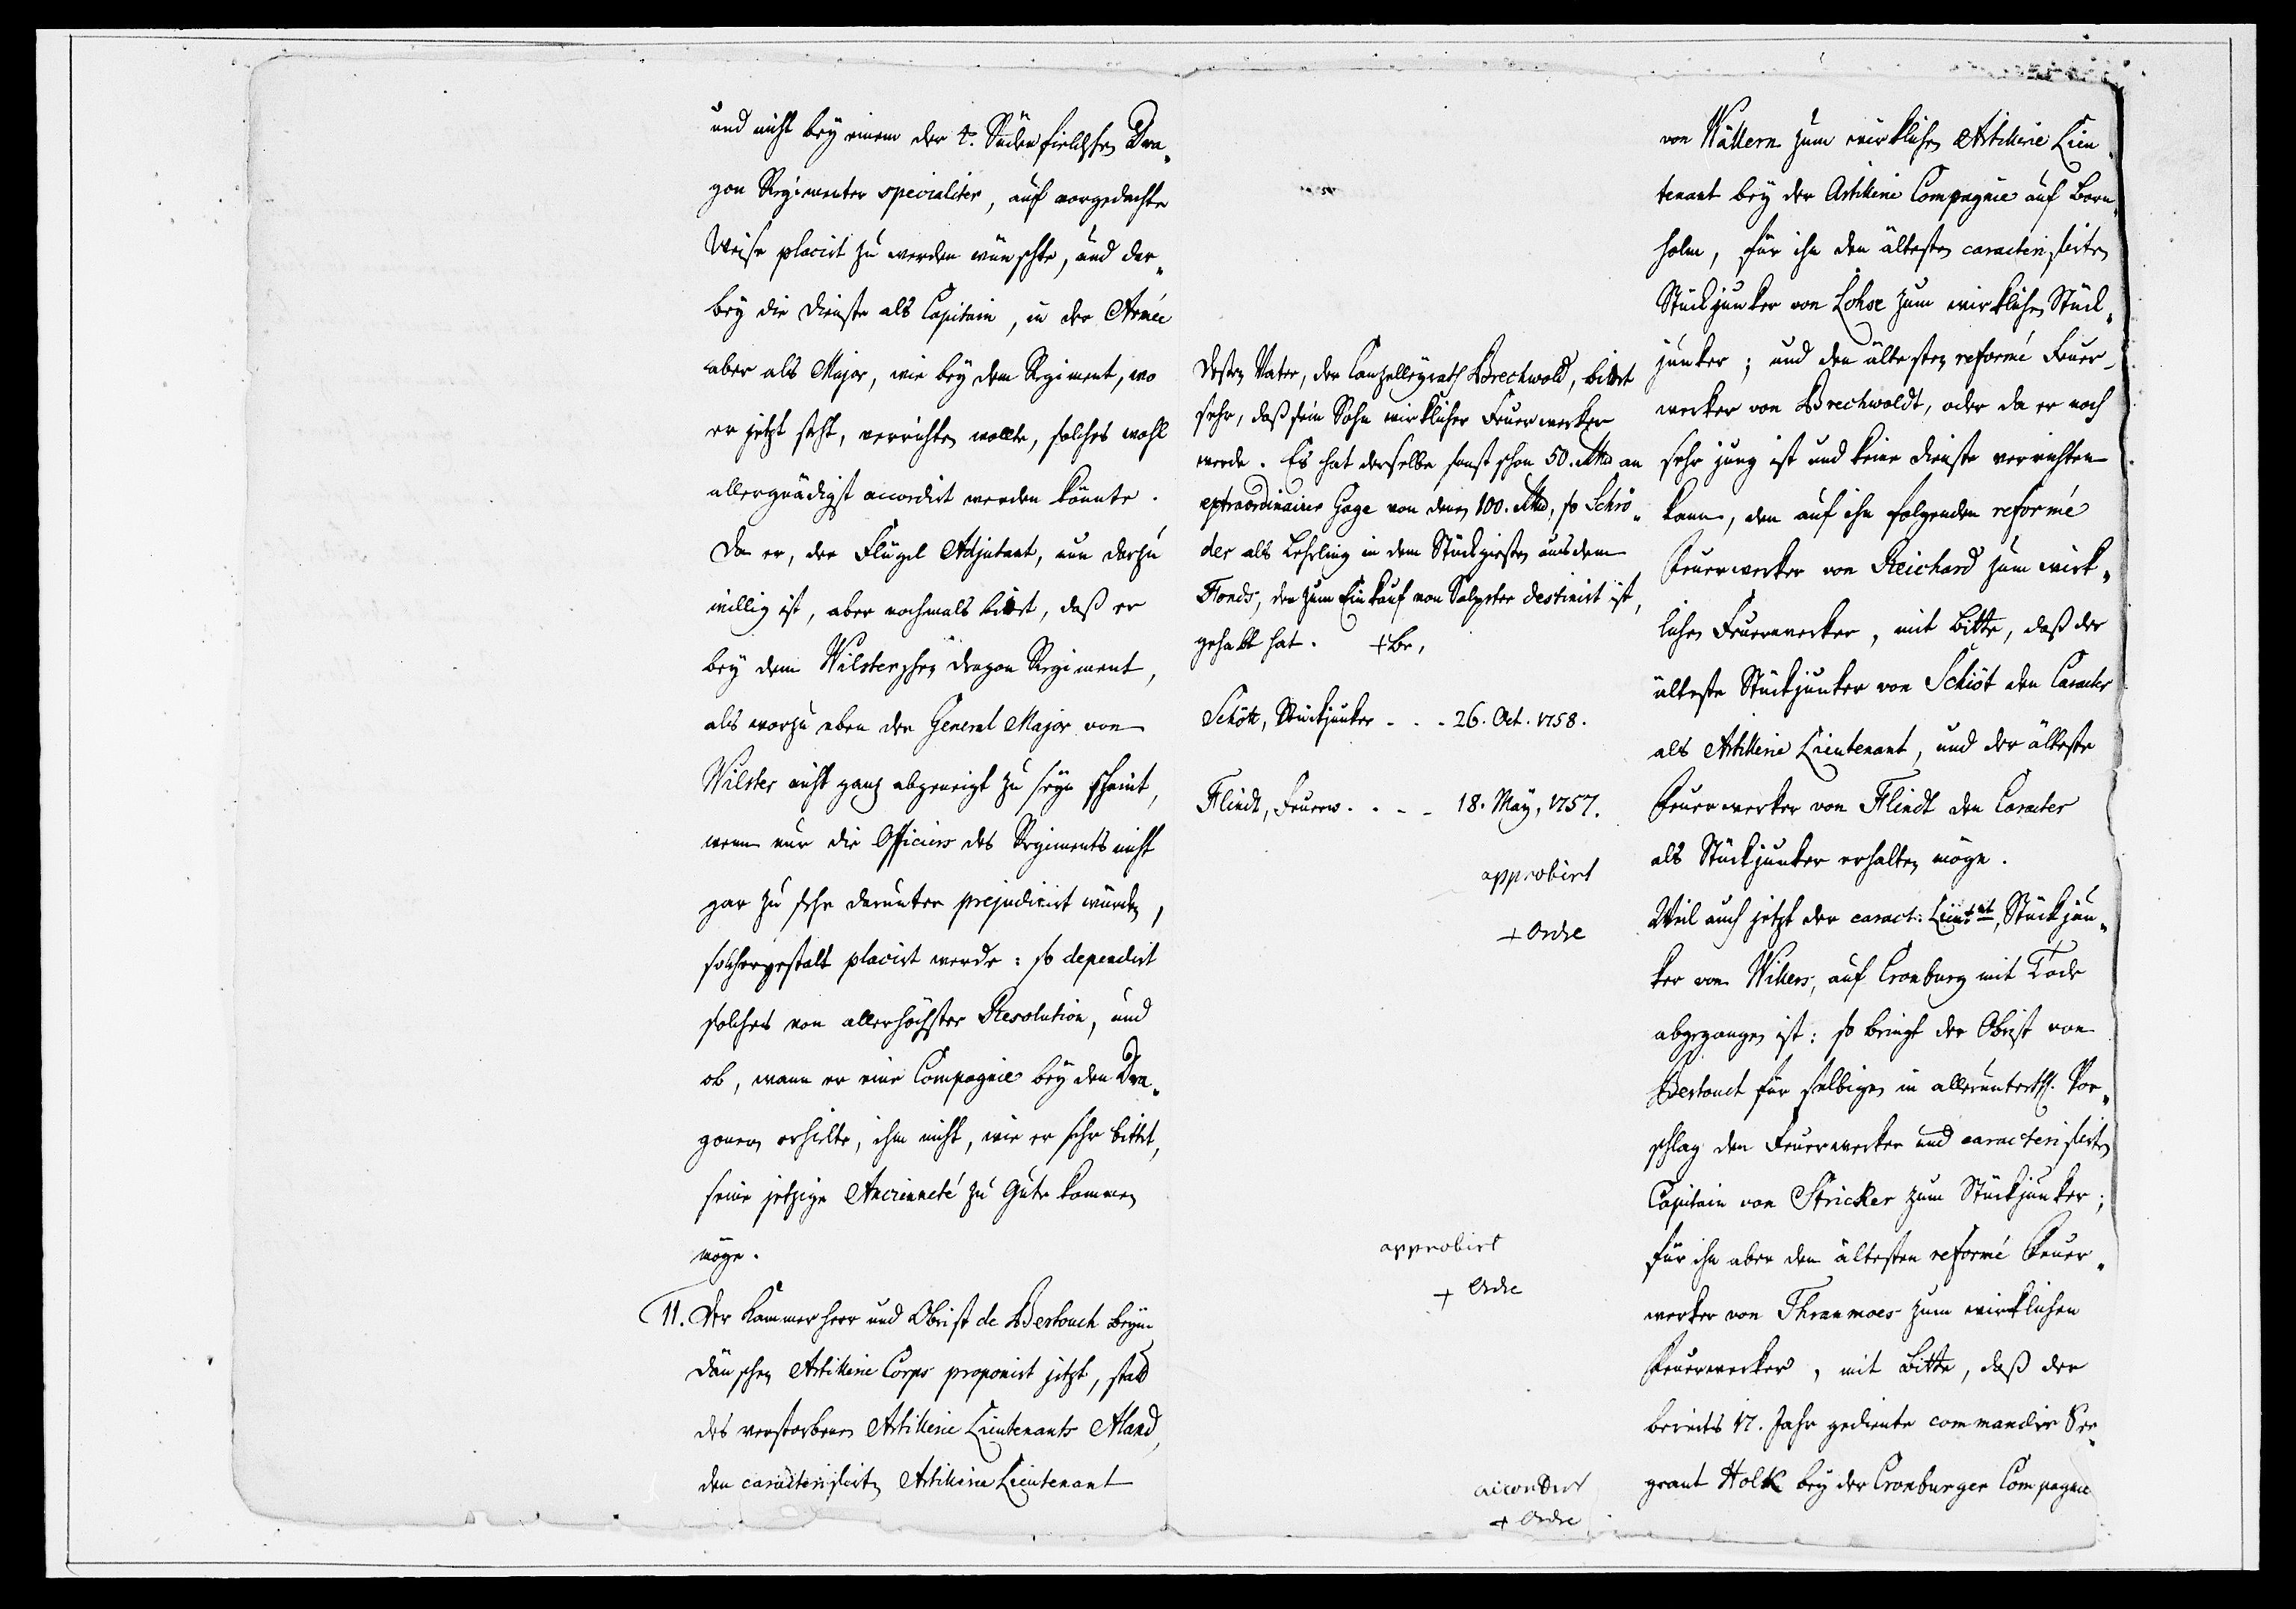 und nicht bey einem der 4. Südenfieldschen Dra„
goner Regimenter specialiter, auf vorgedachte
Weise placirt zu werden wünschte, und dar„
bey die Dienste als Capitain, in der Armée
aber als Major, wie bey dem Regiment, wo
er jetzt steht, verrichten wollte, solches wohl
allergnädigst accordirt werden könnte.
Da er, der Flügel Adjutant, nun darzu
willig ist, aber nochmals bittet, daß er
bey dem Wilsterschen Dragon Regiment,
als worzu eben der General Major von
Wilster nicht ganz abgeneigt zu seyn scheint,
wenn nur die Officiers des Regiments nicht
gar zu sehr darunter prejudicirt würden,
solchergestalt placirt werde: so dependirt
solches von allerhöchster Resolution, und
ob, wann er eine Compagnie bey den Dra„
gonern erhielte, ihm nicht, wie er sehr bittet,
seine jetzige Ancienneté zu Gute kommen
möge.
11. Der Kammerherr und Obrist de Bertouch beym
Dänschen Artillerie Corps proponirt jetzt, statt
des verstorbenen Artillerie Lieutenants Aland,
den caracterisirten Artillerie Lieutenant
Dessen Vater, der Canzelleyrath Brechwold, bittet
sehr, daß sein Sohn wirklicher Feuerwerker
werde. Es hat derselbe sonst schon 50. Rthlr an
extraordinairer Gage von denen 100. Rthlr, so Schrö„
der als Lehrling in dem Stückgiesten aus dem
Fonds, der zum Einkauf von Salpeter destinirt ist,
gehabt hat. + Br,
Schött, Stückjunker - - - 26. Oct. 1758.
Flindt, Feuerw. - - - 18. May, 1757.
approbirt
+ Ordre
approbirt
+ Ordre
accordirt
+ Ordre
von Wallern zum wirklichen Artillerie Lieu„
tenant bey der Artillerie Compagnie auf Born„
holm, für ihn den ältesten caracterisirten
Stückjunker von Lohse zum wirklichen Stück„
junker; und den ältesten reformé Feuer„
werker von Brechwoldt, oder da er noch
sehr jung ist und keine Dienste verrichten
kann, den auf ihn folgenden reformé
Feuerwerker von Reichard zum wirk„
lichen Feuerwerker, mit Bitte, daß der
älteste Stückjunker von Schiöt den Caracter
als Artillerie Lieutenant, und der älteste
Feuerwerker von Flindt den Caracter
als Stückjunker erhalten möge.
Weil auch jetzt der caract: Lieutnt, Stückjun„
ker von Willers, auf Cronburg mit Tode
abgegangen ist: so bringt der Obrist von
Bertouch für selbigen in allerunterth. Vor„
schlag den Feuerwerker und caracterisirten
Capitain von Stricker zum Stückjunker;
für ihn aber den ältesten reformé Feuer„
werker von Thranmoes zum wirklichen
Feuerwerker, mit Bitte, daß der
bereits 17. Jahr gediente commandir Ser„
geant Holk bey der Cronburger Compagnie